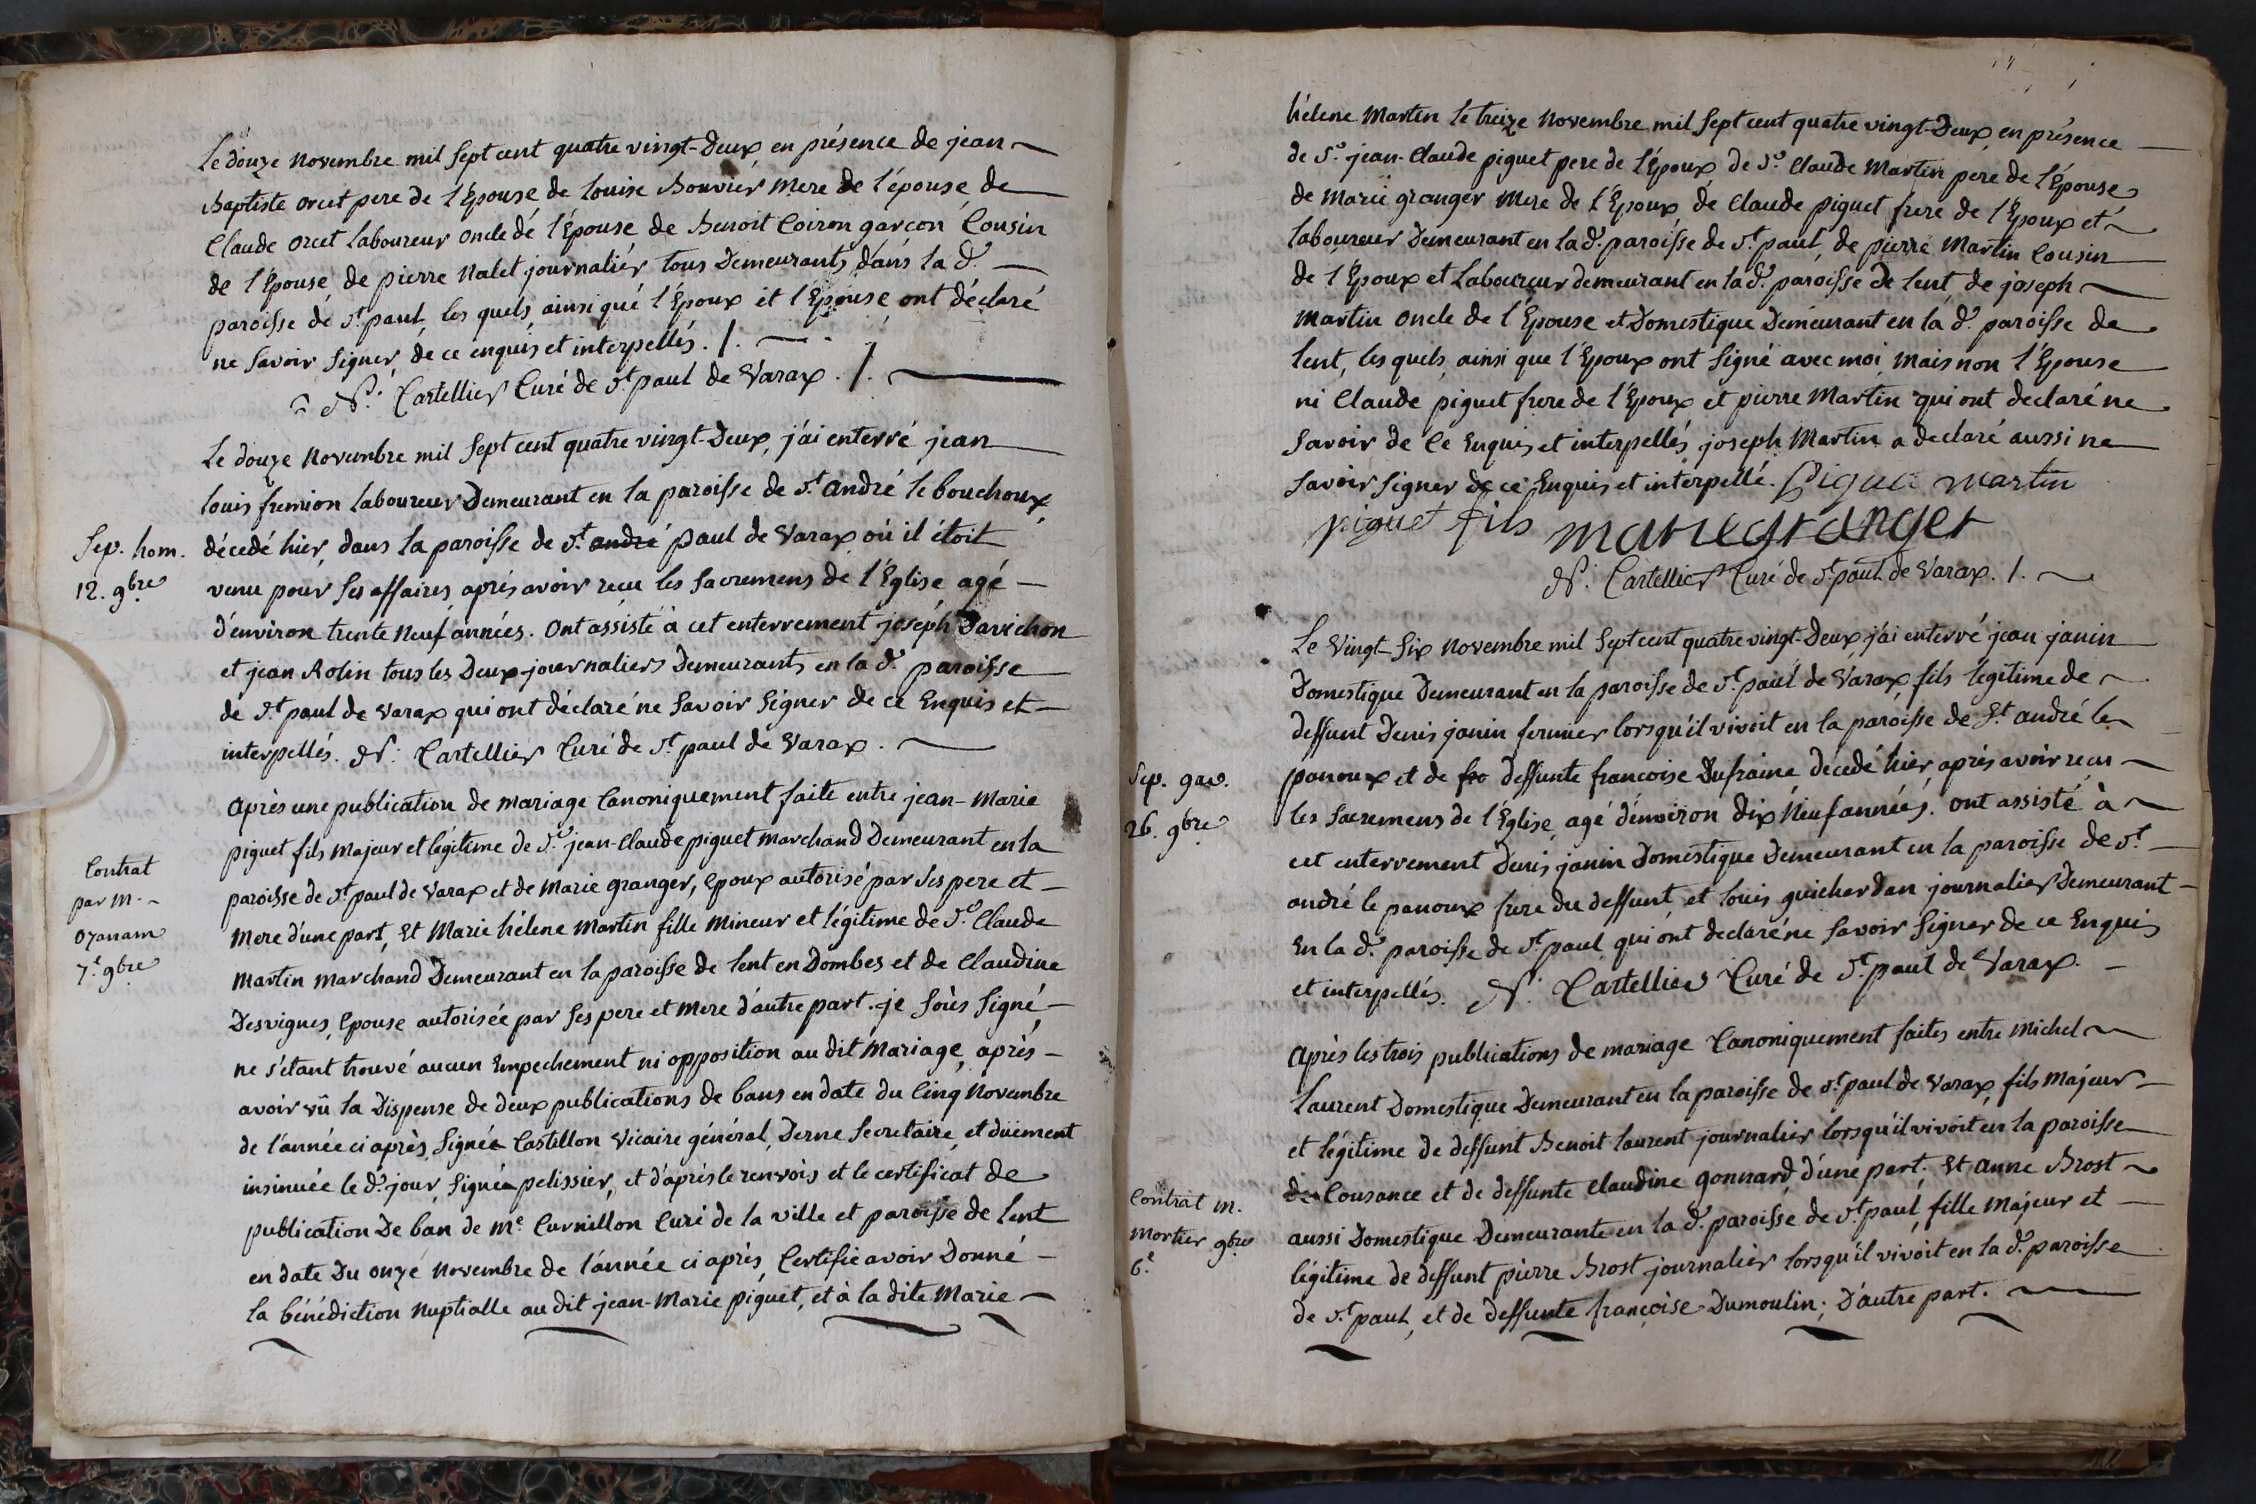 Le douze novembre mil sept cent quatre vingt-deux en présence de jean
Baptiste orcet pere de l'Epouse de louise Bouvier mere de l'épouse de
Claude orcet laboureur oncle de l'épouse de Benoit Coiron garcon Cousin
de l'Epouse de pierre Nalet journalier tous demeurants dans la de.
paroisse de st. paul, les quels, ainsi que l'Epoux et l'Epouse ont déclaré
ne savoir signer de ce enquis et interpellés. /.
N. Cartellier Curé de st. paul de Varax. /.
Le douze novembre mil sept cent quatre vingt-deux, j'ai enterré jean
louis fremion laboureur demeurant en la paroisse de st. andré le bouchoux,
Sep. hom.
12. 9bre
décédé hier dans la paroisse de st. andré paul de Varax où il étoit
venu pour ses affaires après avoir reçu les sacremens de l'Eglise agé
d'environ trente neuf années. Ont assisté à cet enterrement joseph Davichon
et jean Rolin tous les deux journaliers demeurants en la de. paroisse
de st. paul de varax qui ont déclaré ne savoir signer de ce enquis et
interpellés. N. Cartellier Curé de st. paul de Varax.
après une publication de mariage Canoniquement faite entre jean-Marie
piguet fils majeur et légitime de sr. jean-Claude piguet marchand demeurant en la
Contrat
par M.
ozanam
7e. 9bre
paroisse de st. paul de Varax et de Marie granger, epoux autorisé par ses pere et
mere d'une part, et Marie hélene Martin fille mineur et légitime de sr. Claude
Martin marchand demeurant en la paroisse de lent en Dombes et de Claudine
Desvignes, Epouse autorisée par ses pere et mere d'autre part. je soùs signé,
ne s'étant trouvé aucun Empechement ni opposition au dit mariage, après
avoir vû la Dispense de deux publications de bans en date du Cinq novembre
de l'année ci après, signée Castillon vicaire général, Derne secretaire, et düement
insinuée le de. jour, signée pelissier, et d'après le renvois et le certificat de
publication de ban de me. Curnillon Curé de la ville et paroisse de lent
en date du onze novembre de l'année ci après, Certifie avoir donné
la bénédiction nuptialle au dit jean-Marie piguet, et à la dite Marie
hélene Martin le treize novembre mil sept cent quatre vingt-deux, en présence
de sr. jean-Claude piguet pere de l'Epoux de sr. Claude Martin pere de l'Epouse
de Marie granger mere de l'Epoux, de Claude piguet frere de l'Epoux et
laboureur demeurant en la de. paroisse de st. paul, de pierre Martin Cousin
de l'Epoux et Laboureur demeurant en la de. paroisse de lent, de joseph
Martin oncle de l'Epouse et Domestique demeurant en la de. paroisse de
lent, les quels, ainsi que l'Epoux ont signé avec moi, mais non l'Epouse
ni Claude piguet frere de l'Epoux et pierre Martin qui ont declaré ne
savoir de ce Enquis et interpellés joseph Martin a declaré aussi ne
savoir signer de ce Enquis et interpellé. Piguet martin
piguet fils marie granger
N. Cartellier Curé de st. paul de Varax. /.
Le Vingt-six novembre mil sept cent quatre vingt-deux, j'ai enterré jean janin
Domestique demeurant en la paroisse de st. paul de Varax, fils légitime de
deffunt Denis janin fermier lorsqu'il vivoit en la paroisse de st. andré le
Sep. gar.
26. 9bre
panoux et de fra deffunte francoise Dufraine, decedé hier, après avoir recu
les sacremens de l'Eglise, agé d'environ dix neuf années. ont assisté à
cet enterrement Denis janin Domestique demeurant en la paroisse de st.
andré le panoux frere du deffunt, et louis guichardan journalier demeurant
En la de. paroisse de st. paul qui ont declaré ne savoir signer de ce Enquis
et interpellés. N. Cartellier Curé de st. paul de Varax.
après les trois publications de mariage Canoniquement faites entre Michel
Laurent Domestique demeurant en la paroisse de st. paul de Varax, fils majeur
et légitime de deffunt Benoit laurent journalier lorsqu'il vivoit en la paroisse
Contrat M.
mortier 9bre
6e.
de Cousance et de deffunte Claudine gonnard d'une part. Et anne Brost
aussi Domestique demeurante en la de. paroisse de st. paul, fille majeur et
légitime de deffunt pierre Brost journalier lorsqu'il vivoit en la de. paroisse
de st. paul, et de deffunte françoise Dumoulin, d'autre part.